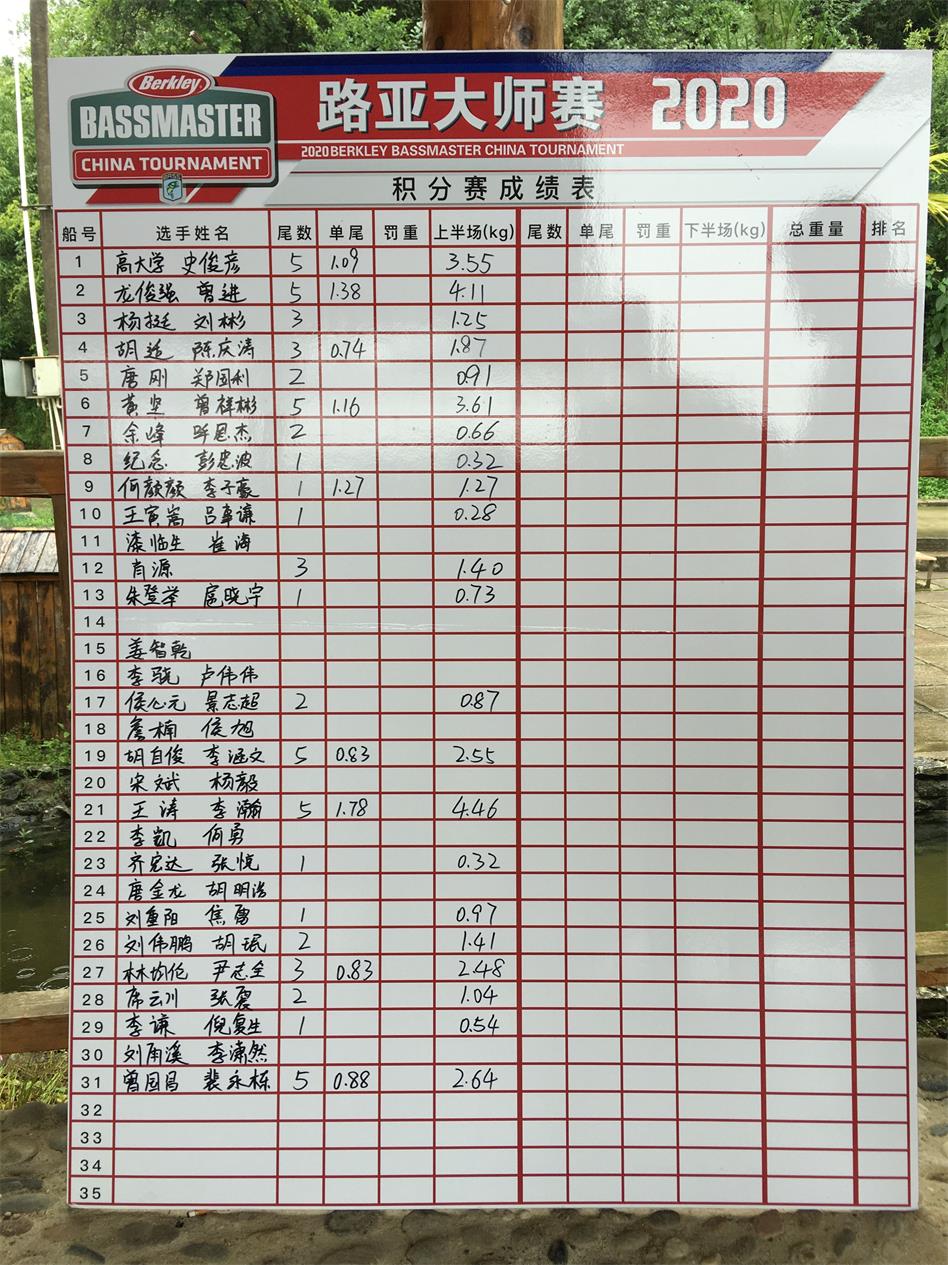 Berkley
BASSMASTER
CHINA TOURNAMENT
路亚大师赛 2020
2020 BERKLEY BASSMASTER CHINA TOURNAMENT
积分赛成绩表
船号 选手姓名 尾数 单尾 罚重 上半场(kg) 尾数 单尾 罚重 下半场(kg) 总重量 排名
1 高大学 史俊彦 5 1.09 3.55
2 龙俊强 曾进 5 1.38 4.11
3 杨挺 刘彬 3 1.25
4 胡适 陈庆涛 3 0.74 1.87
5 唐刚 郑国利 2 0.91
6 黄坚 曾祥彬 5 1.16 3.61
7 余峰 恩杰 2 0.66
8 纪念 彭忠波 1 0.32
9 何颜颜 李子豪 1 1.27 1.27
10 王寅嵩 吕卓谦 1 0.28
11 漆临生 崔海
12 肖源 3 1.40
13 朱登举 扈晓宇 1 0.73
14
15 姜智乾
16 李骁 卢伟伟
17 侯心元 景志超 2 0.87
18 詹楠 侯旭
19 胡自俊 李涵文 5 0.83 2.55
20 宋斌 杨毅
21 王涛 李瀚 5 1.78 4.46
22 李凯 何勇
23 齐宏达 张悦 1 0.32
24 唐金龙 胡明浩
25 刘重阳 焦勇 1 0.97
26 刘伟鹏 胡珉 2 1.41
27 林均伦 尹志全 3 0.83 2.48
28 席云川 张震 2 1.04
29 李谦 倪复生 1 0.54
30 刘雨溪 李潇然
31 曾国昌 裴永栋 5 0.88 2.64
32
33
34
35